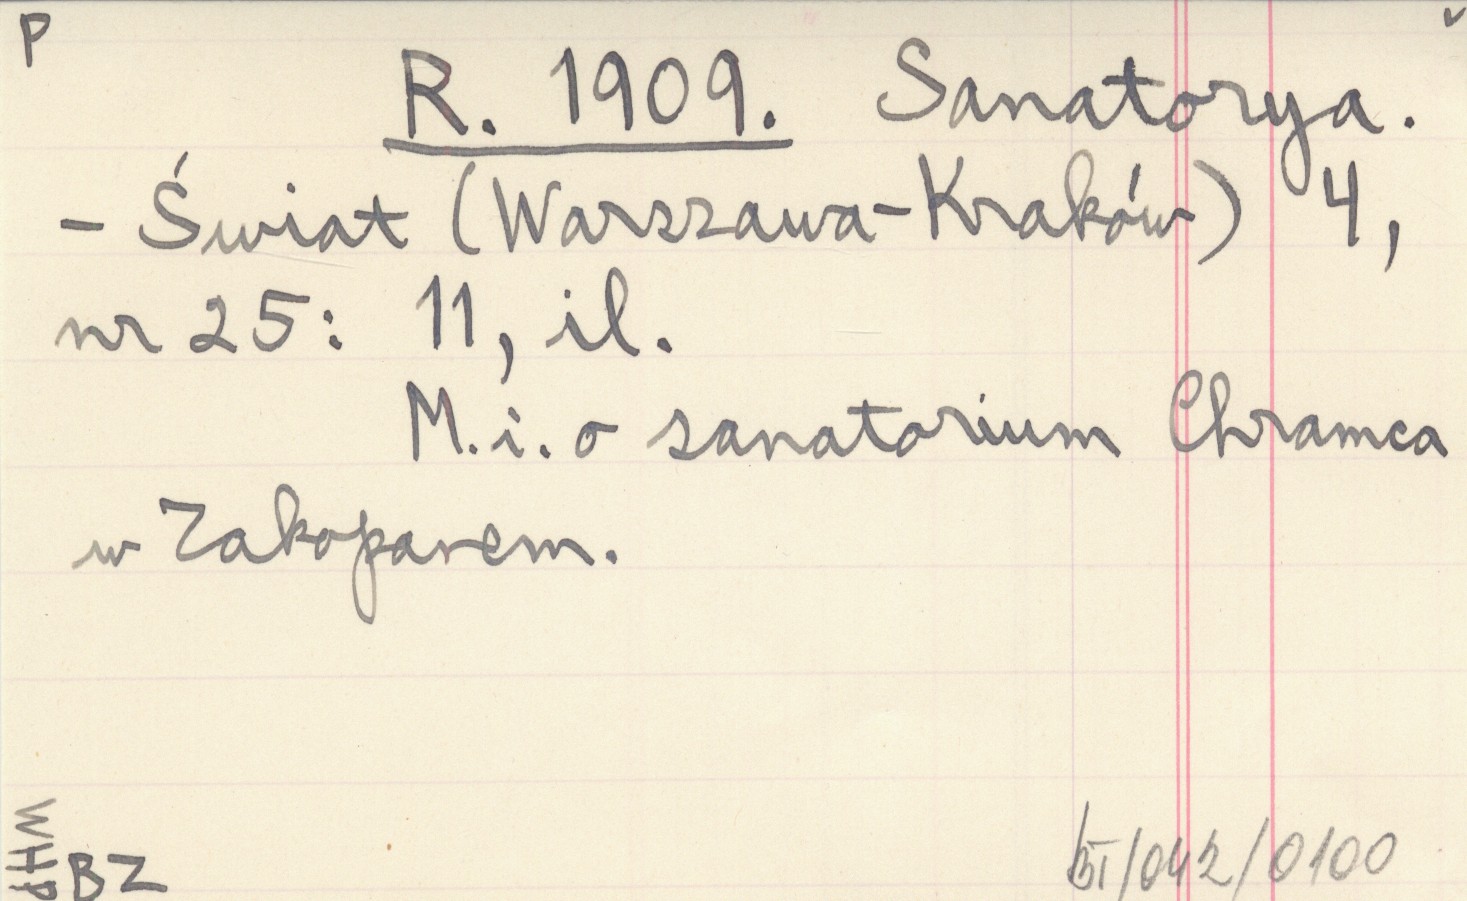 P
v
R. 1909. Sanatorya.
- Świat (Warszawa-Kraków) 4,
nr 25: 11, il.
M.i. o sanatorium Chramca
w Zakopanem.
BZ
/042/0100